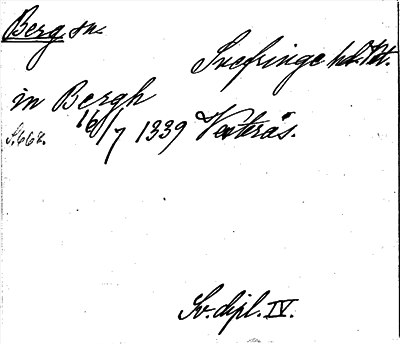 Berg sn.
Svefringe hd. Ög.
in Bergh
S. 668. 16/7 1339 Vesterås.
Sv. dipl. IV.